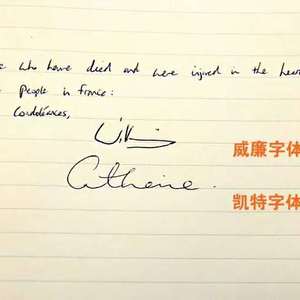 who have died and were injured in the
People in France:
Condoléances,
威廉字体
Catherine.
凯特字体